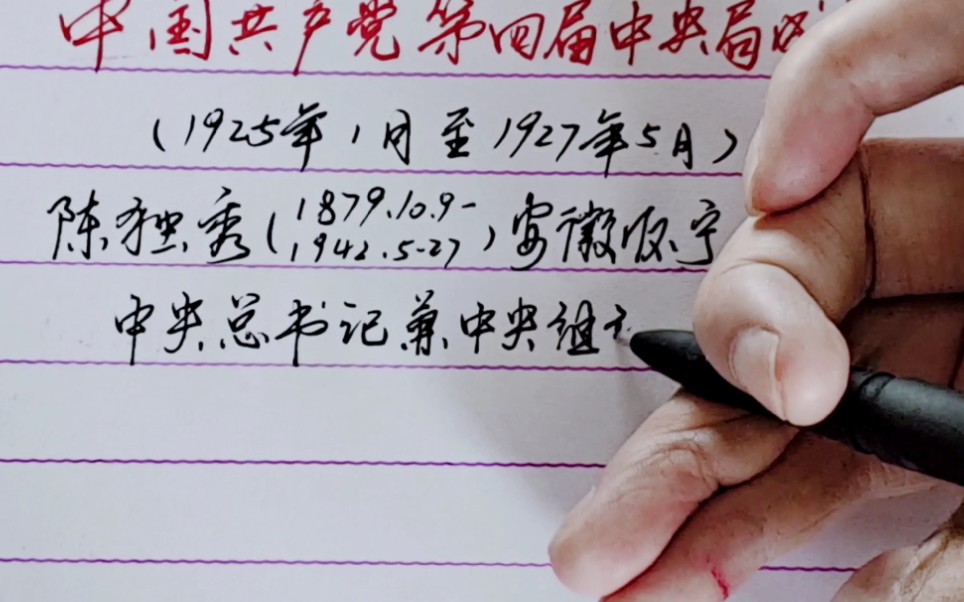 中国共产党第四届中央局成
(1925年1月至1927年5月)
陈独秀(1879.10.9-1942.5.27)安徽怀宁
中央总书记兼中央组